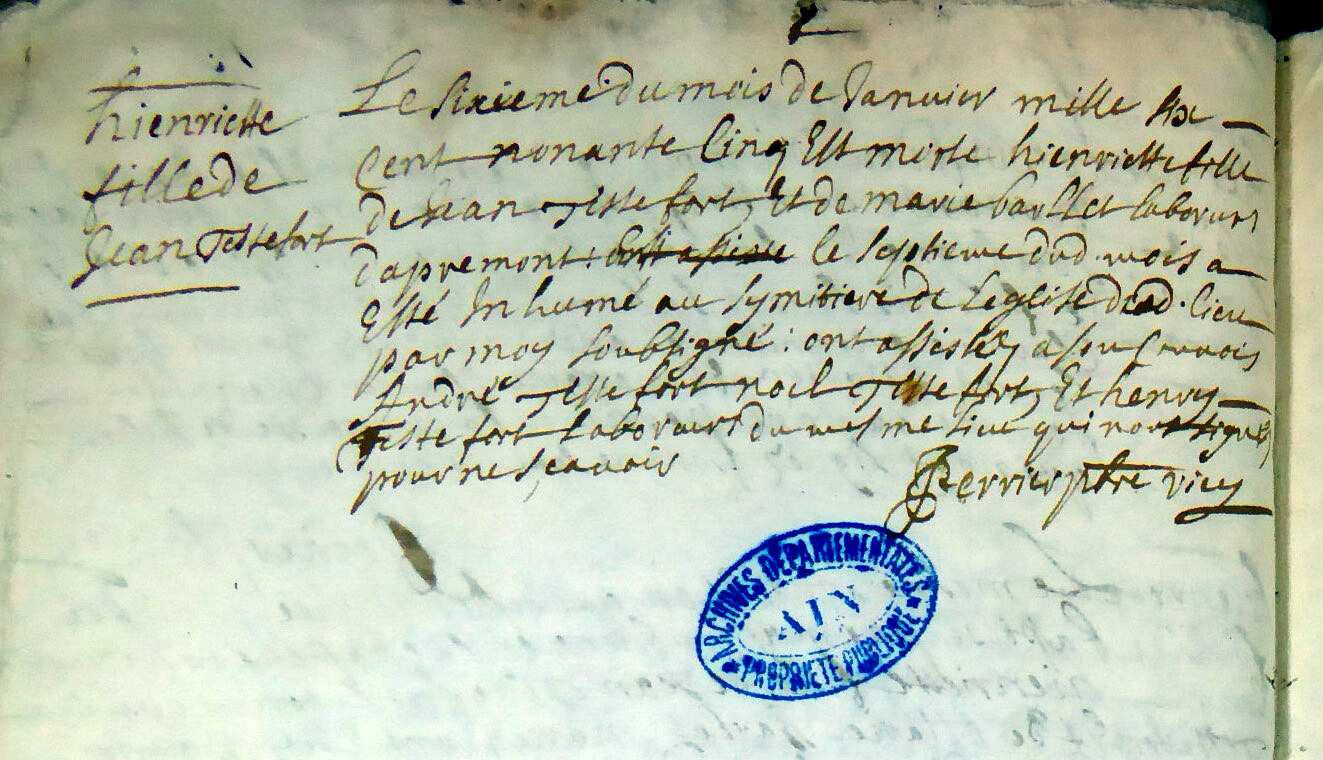 hienriette
fille de
Jean Testefort
Le sixieme du mois de Janvier mille six
cent nonante Cinq Est morte hienriette fille
de Jean Testefort Et de marie barllet laboreurs
d'apremont : le septieme dud. mois a
Esté Inhumé au symitiere de Leglise dud. lieu
par moy soubsigné : ont assistés a son Convois
André Testefort noel Testefort Et henry
Testefort Laboreurs du mesme lieu qui n'ont signés
pour ne scavoir
Perrier ptre vic
ARCHIVES DÉPARTEMENTALES
AIN
PROPRIÉTÉ PUBLIQUE